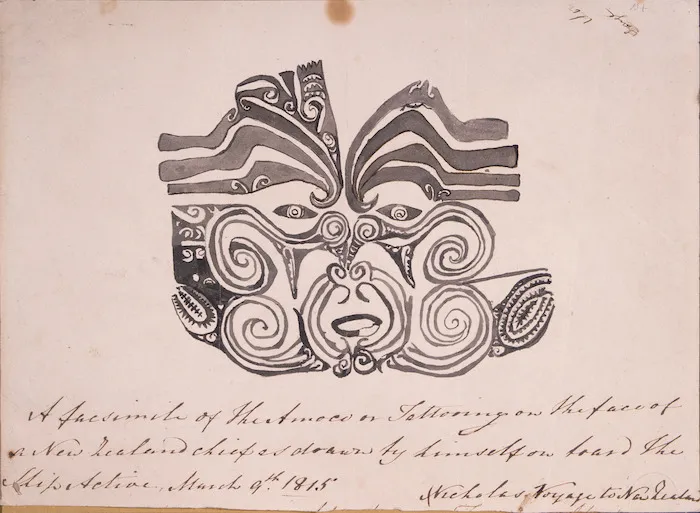 A facsimile of the Amoco or Tattooing on the face of
a New Zealand chief as drawn by himself on board the
Ship Active, March 9th 1815
Nicholas Voyage to New Zealand